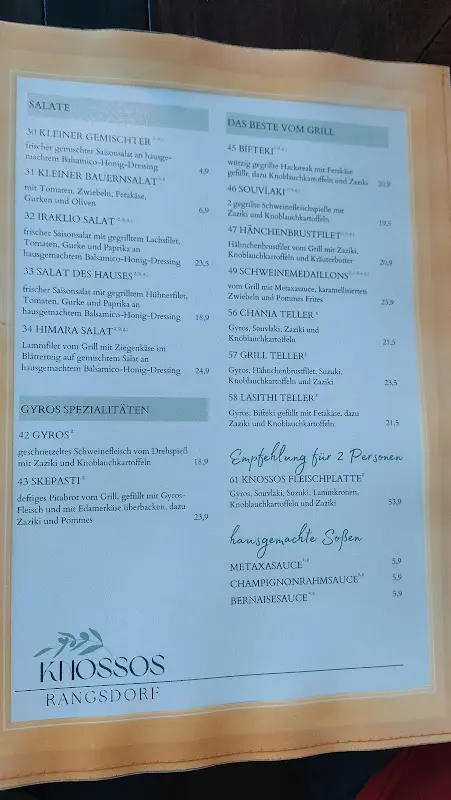 SALATE
30 KLEINER GEMISCHTER
frischer gemischter Saisonsalat an hausge-
machtem Balsamico-Honig-Dressing 4,9
31 KLEINER BAUERNSALAT
mit Tomaten, Zwiebeln, Fetakäse,
Gurken und Oliven 6,9
32 IRAKLIO SALAT
frischer Saisonsalat mit gegrilltem Lachsfilet,
Tomaten, Gurke und Paprika an
hausgemachtem Balsamico-Honig-Dressing 23,5
33 SALAT DES HAUSES
frischer Saisonsalat mit gegrilltem Hühnerfilet,
Tomaten, Gurke und Paprika an
hausgemachtem Balsamico-Honig-Dressing 18,9
34 HIMARA SALAT
Lammfilet vom Grill mit Ziegenkäse im
Blätterteig auf gemischtem Salat an
hausgemachtem Balsamico-Honig-Dressing 24,9
GYROS SPEZIALITÄTEN
42 GYROS
geschnetzeltes Schweinefleisch vom Drehspieß
mit Zaziki und Knoblauchkartoffeln 18,9
43 SKEPASTI
deftiges Pitabrot vom Grill, gefüllt mit Gyros-
Fleisch und mit Edamerkäse überbacken, dazu
Zaziki und Pommes 23,9
DAS BESTE VOM GRILL
45 BIFTEKI
würzig gegrillte Hacksteak mit Fetakäse
gefüllt, dazu Knoblauchkartoffeln und Zaziki 20,9
46 SOUVLAKI
2 gegrillte Schweinefleischspieße mit
Zaziki und Knoblauchkartoffeln 19,5
47 HÄNCHENBRUSTFILET
Hähnchenbrustfilet vom Grill mit Zaziki,
Knoblauchkartoffeln und Kräuterbutter 20,9
49 SCHWEINEMEDAILLONS
vom Grill mit Metaxasauce, karamellisierten
Zwiebeln und Pommes Frites 23,9
56 CHANIA TELLER
Gyros, Souvlaki, Zaziki und
Knoblauchkartoffeln 21,5
57 GRILL TELLER
Gyros, Hähnchenbrustfilet, Suzuki,
Knoblauchkartoffeln und Zaziki 23,5
58 LASITHI TELLER
Gyros, Bifteki gefüllt mit Fetakäse, dazu
Zaziki und Knoblauchkartoffeln. 21,5
Empfehlung für 2 Personen
61 KNOSSOS FLEISCHPLATTE
Gyros, Souvlaki, Suzuki, Lammkronen,
Knoblauchkartoffeln und Zaziki 53,9
hausgemachte Soßen
METAXASAUCE 5,9
CHAMPIGNONRAHMSAUCE 5,9
BERNAISESAUCE 5,9
KNOSSOS
RANGSDORF